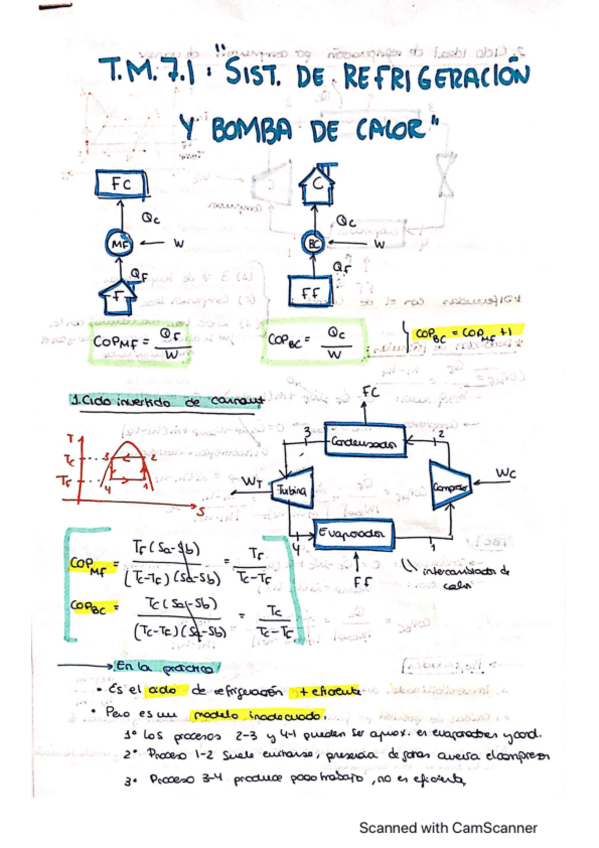 T.M.7.1: "SIST. DE REFRIGERACIÓN
Y BOMBA DE CALOR"
FC
C
Qc
Qc
MF
W
BC
W
QF
QF
F
FF
COP MF = QF / W
COP BC = Qc / W
COP BC = COP MF + 1
1. Ciclo invertido de carnaut
FC
T
Tc
TF
3
2
4
1
S
3
Condensador
2
WT
Turbina
Compresor
Wc
4
Evaporador
1
FF
intercambiador de
calor
COP MF = TF (Sa-Sb) / (Tc-TF) (Sa-Sb) = TF / Tc-TF
COP BC = Tc (Sa-Sb) / (Tc-TF) (Sa-Sb) = Tc / Tc-TF
En la práctica
• Es el ciclo de refrigeración + eficiente
• Pero es un modelo inadecuado:
1º Los procesos 2-3 y 4-1 pueden ser aprox. en evaporadores y cond.
2º Proceso 1-2 suele evitarse, presencia de gotas averia el compresor
3º Proceso 3-4 produce poco trabajo, no es eficiente,
Scanned with CamScanner